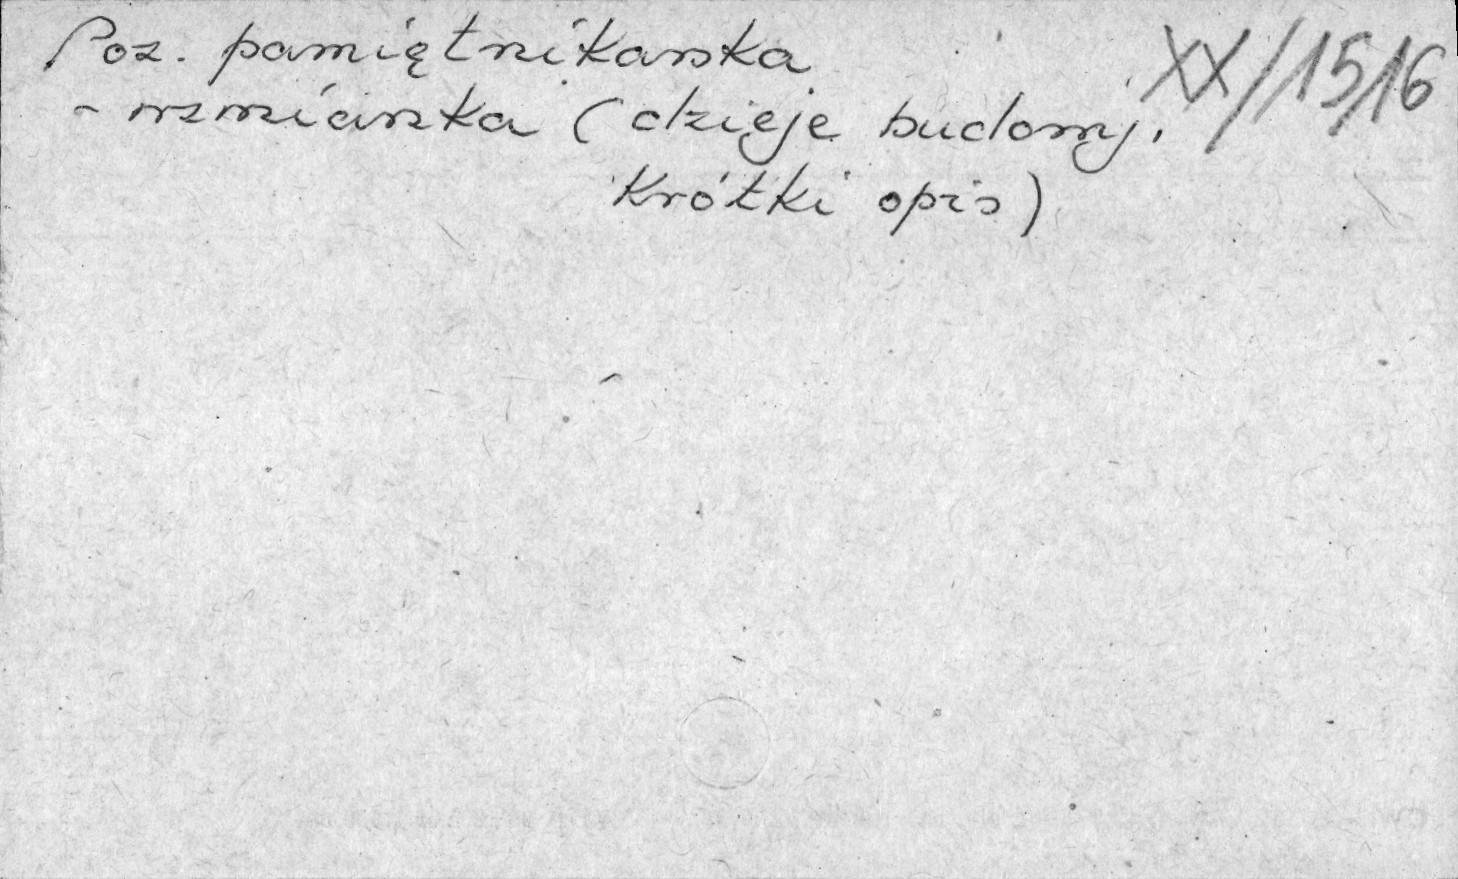 Poz. pamiętnikarska XX/1516
- wzmianka (dzieje budowy,
krótki opis)